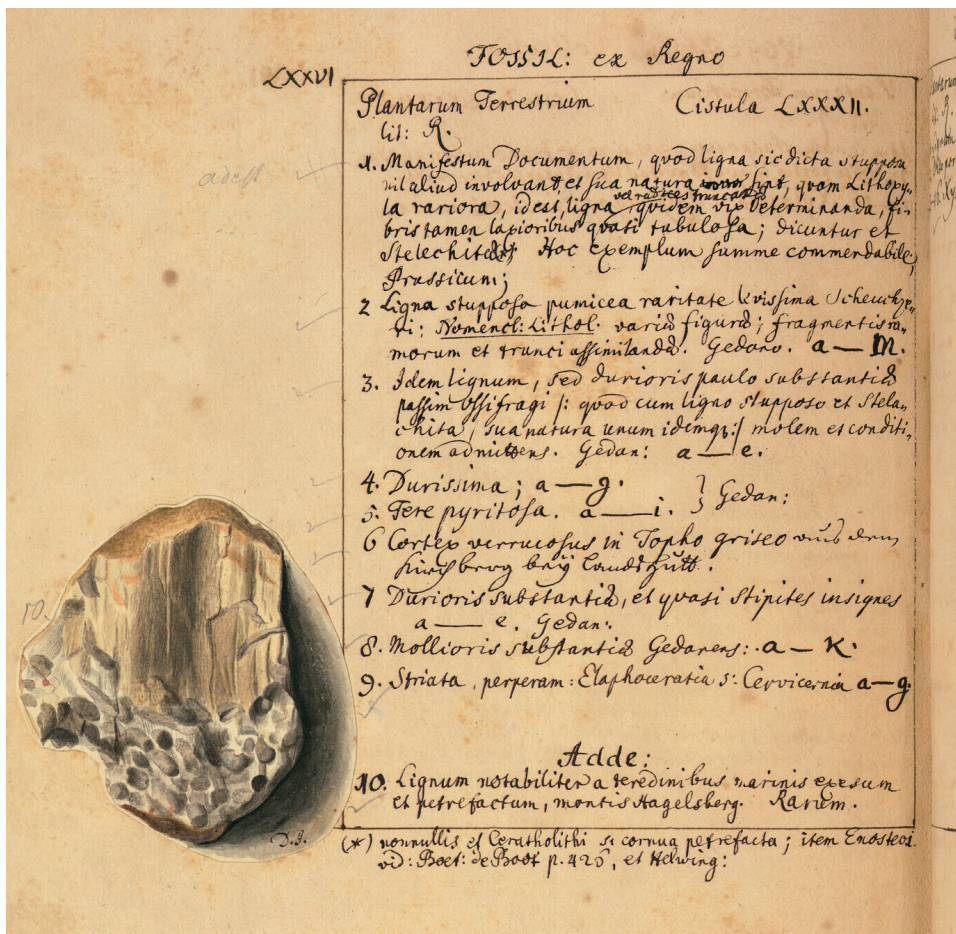 FOSSIL: ex Regno
LXXVI
Plantarum Terrestrium Cistula LXXXII.
lit: R.
adest
1. Manifestum Documentum, quod ligna sic dicta stupposa
nil aliud involvant, et sua natura sint, quam Lithoxy-
vel radices truncatas
la rariora, id est, ligna quidem vix determinanda, fi-
bris tamen laxioribus quasi tubulosa; dicuntur et
Stelechitæ; Hoc exemplum summe commendabile,
Prussicum;
2 Ligna stupposa pumicea raritate levissima Scheuchze-
ri: Nomencl: Lithol. variæ figuræ; fragmentis ra-
morum et trunci assimilanda. Gedano. a — m.
3. Idem lignum, sed durioris paulo substantiæ
passim Ossifragi /: quod cum ligno stupposo et Stela-
chita, sua natura unum idemq: / molem et conditi-
onem admittens. Gedan: a — e.
4. Durissima; a — g. } Gedan:
5. Fere pyritosa. a — i.
6 Cortex verrucosus in Topho griseo aus dem
Kirchberg beÿ Landshutt.
7 Durioris substantiæ, et quasi stipites insignes
a — e. Gedan:
8. Mollioris substantiæ Gedanens: a — K.
9. Striata, perperam: Elaphoceratia s: Cervicornia a — g.
Adde:
10. Lignum notabiliter a teredinibus marinis exesum
et petrefactum, montis Hagelsberg. Rarum.
10.
D.J.
(*) nonnullis et Ceratholithi s: cornua petrefacta; item Enosteoi.
vid: Boet: de Boot p. 425, et Helwing: